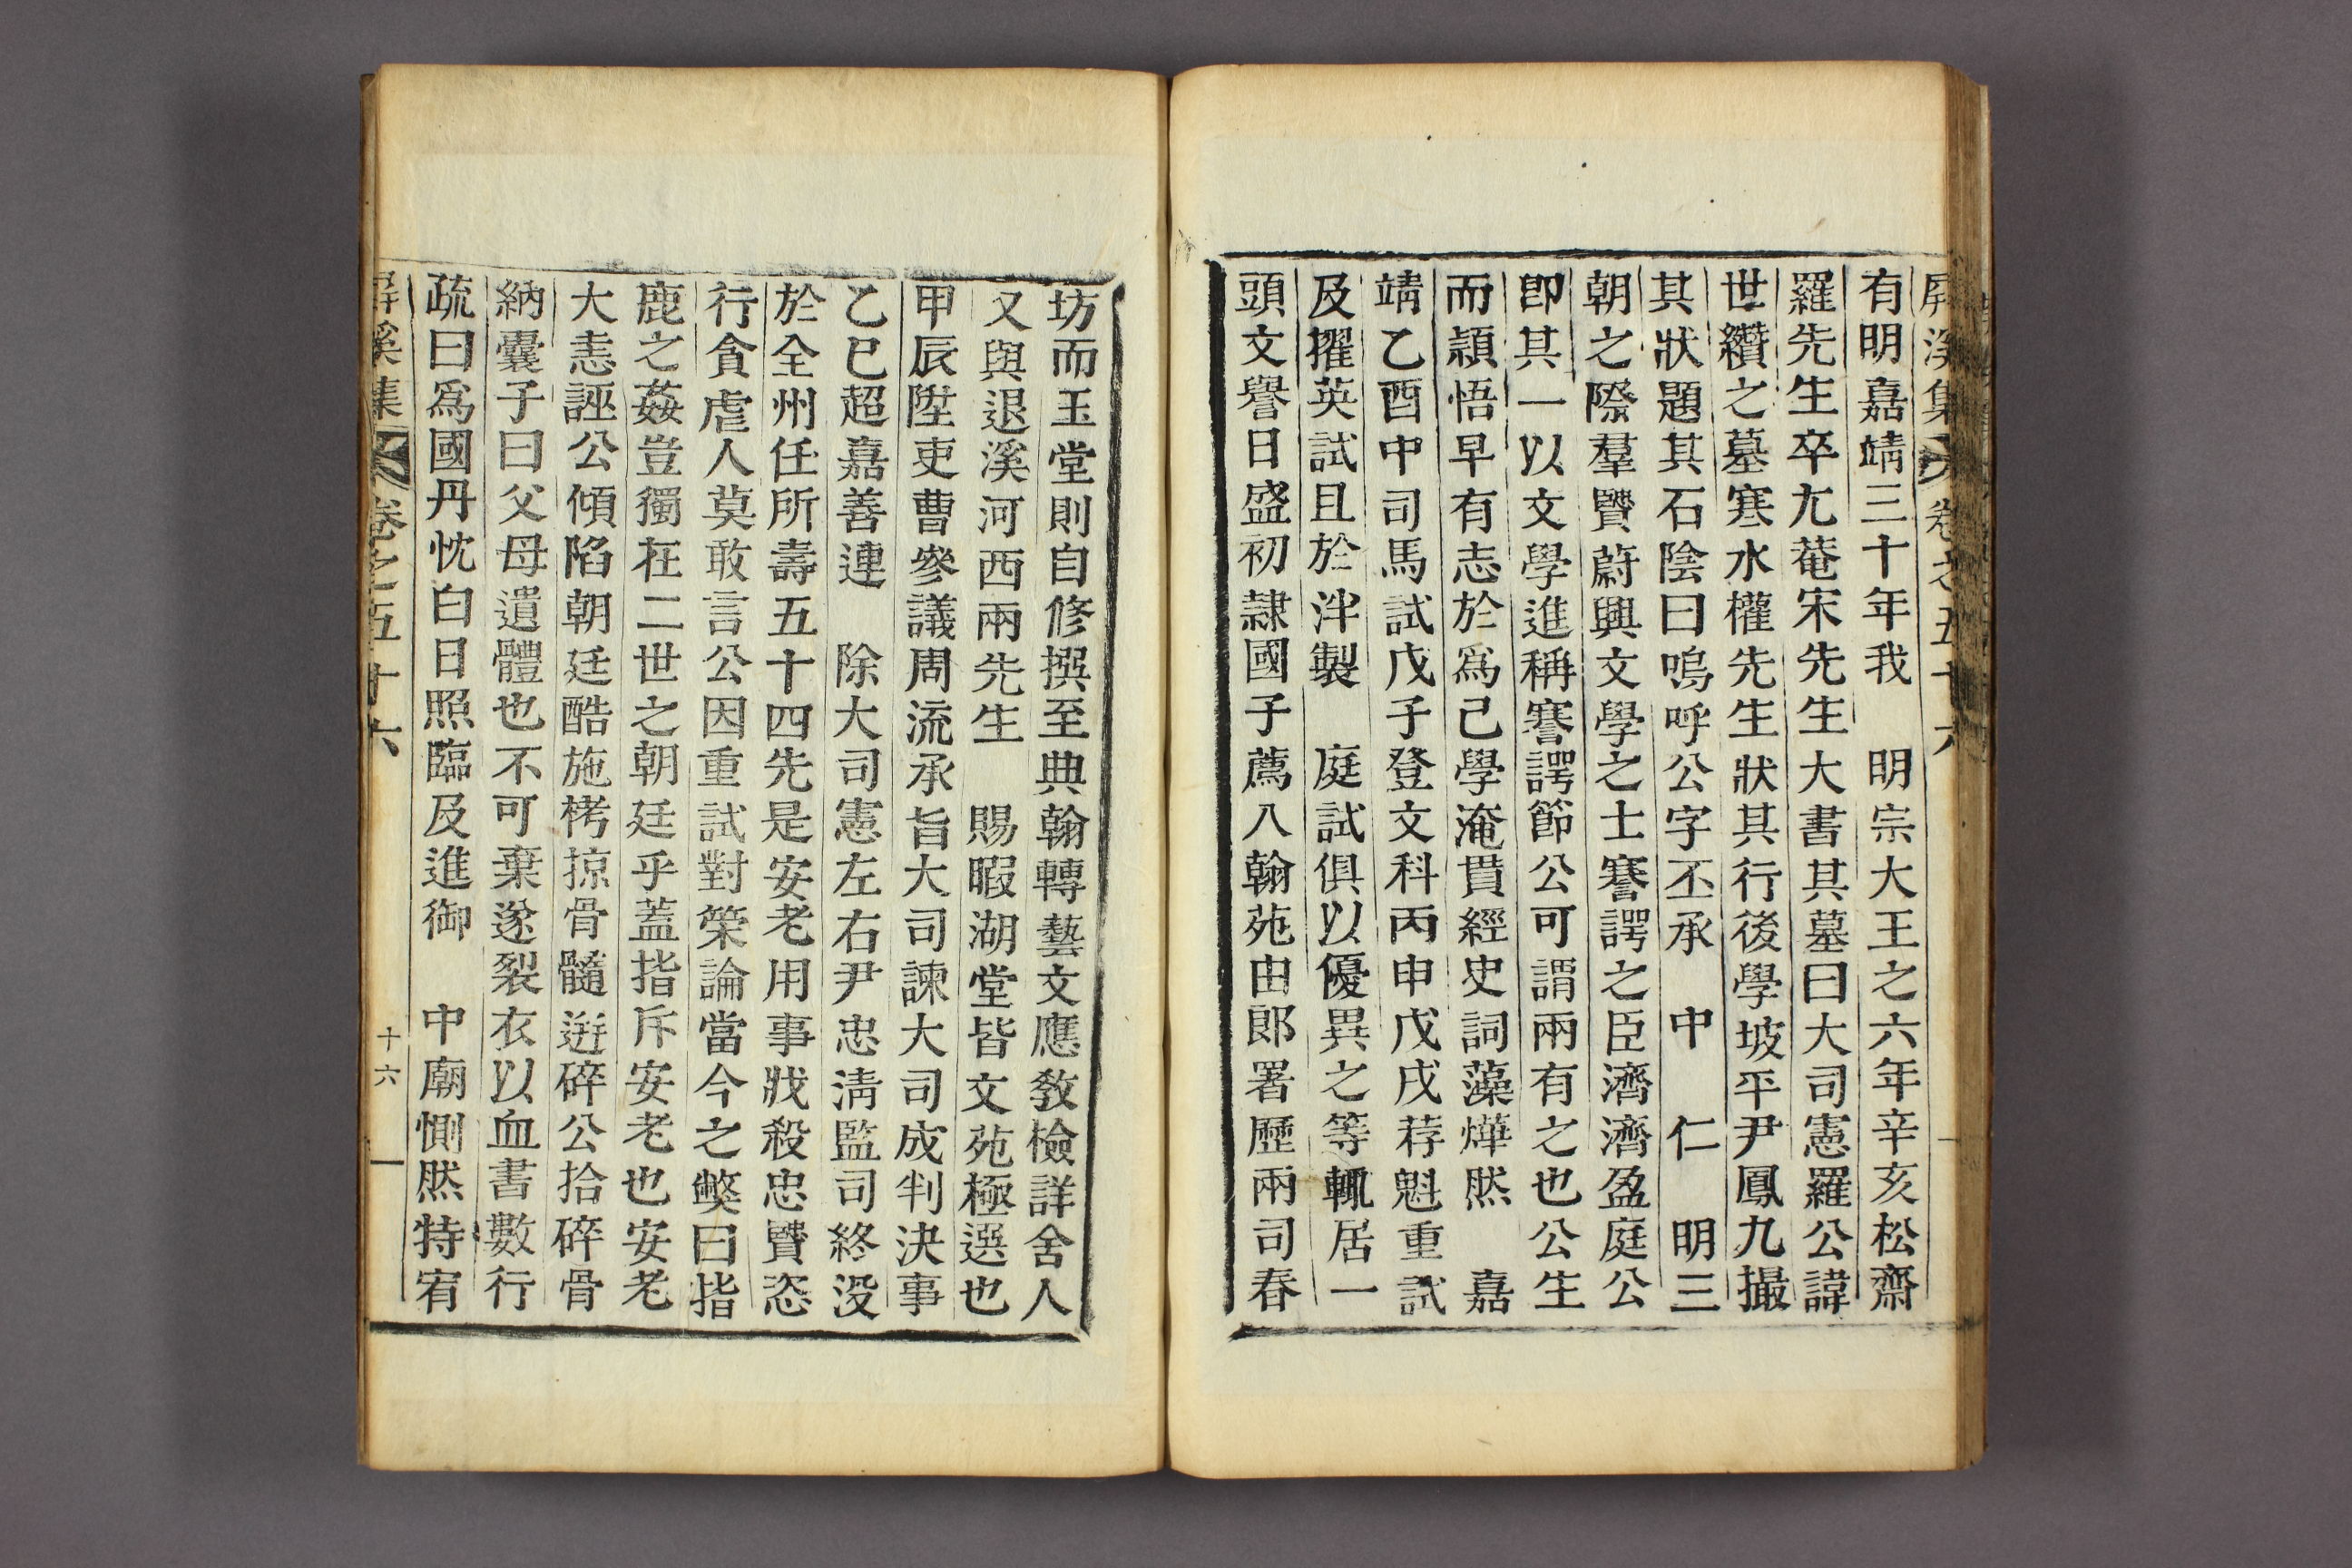 屛溪集 卷之五十六
有明嘉靖三十年我 明宗大王之六年辛亥松齋
羅先生卒尤菴宋先生大書其墓曰大司憲羅公諱
世纘之墓寒水權先生狀其行後學坡平尹鳳九撮
其狀題其石陰曰嗚呼公字丕承 中 仁 明三
朝之際羣賢蔚興文學之士謇諤之臣濟濟盈庭公
卽其一以文學進稱謇諤節公可謂兩有之也公生
而頴悟早有志於爲己學淹貫經史詞藻燁然 嘉
靖乙酉中司馬試戊子登文科丙申戊戌荐魁重試
及擢英試且於泮製 庭試俱以優異之等輒居一
頭文譽日盛初隷國子薦入翰苑由郞署歷兩司春
坊而玉堂則自修撰至典翰轉藝文應敎檢詳舍人
又與退溪河西兩先生 賜暇湖堂皆文苑極選也
甲辰陞吏曹參議周流承旨大司諫大司成判决事
乙巳超嘉善連 除大司憲左右尹忠淸監司終沒
於全州任所壽五十四先是安老用事戕殺忠賢恣
行貪虐人莫敢言公因重試對策論當今之獘曰指
鹿之姦豈獨在二世之朝廷乎蓋指斥安老也安老
大恚誣公傾陷朝廷酷施栲掠骨髓逬碎公拾碎骨
納囊子曰父母遺體也不可棄遂裂衣以血書數行
疏曰爲國丹忱白日照臨及進御 中廟惻然特宥
屛溪集 卷之五十六 十六